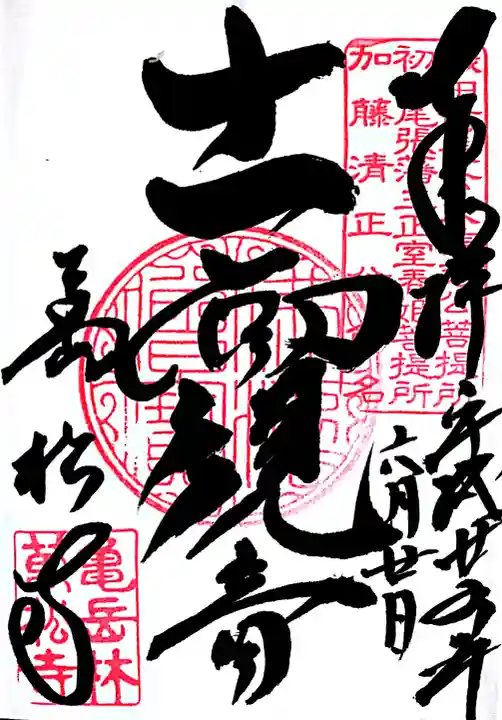 奉拝
平成廿五年
六月廿日
初代尾張藩主正室春姫菩提所
加藤清正公
十一面観音
萬松寺
亀岳林
萬松寺